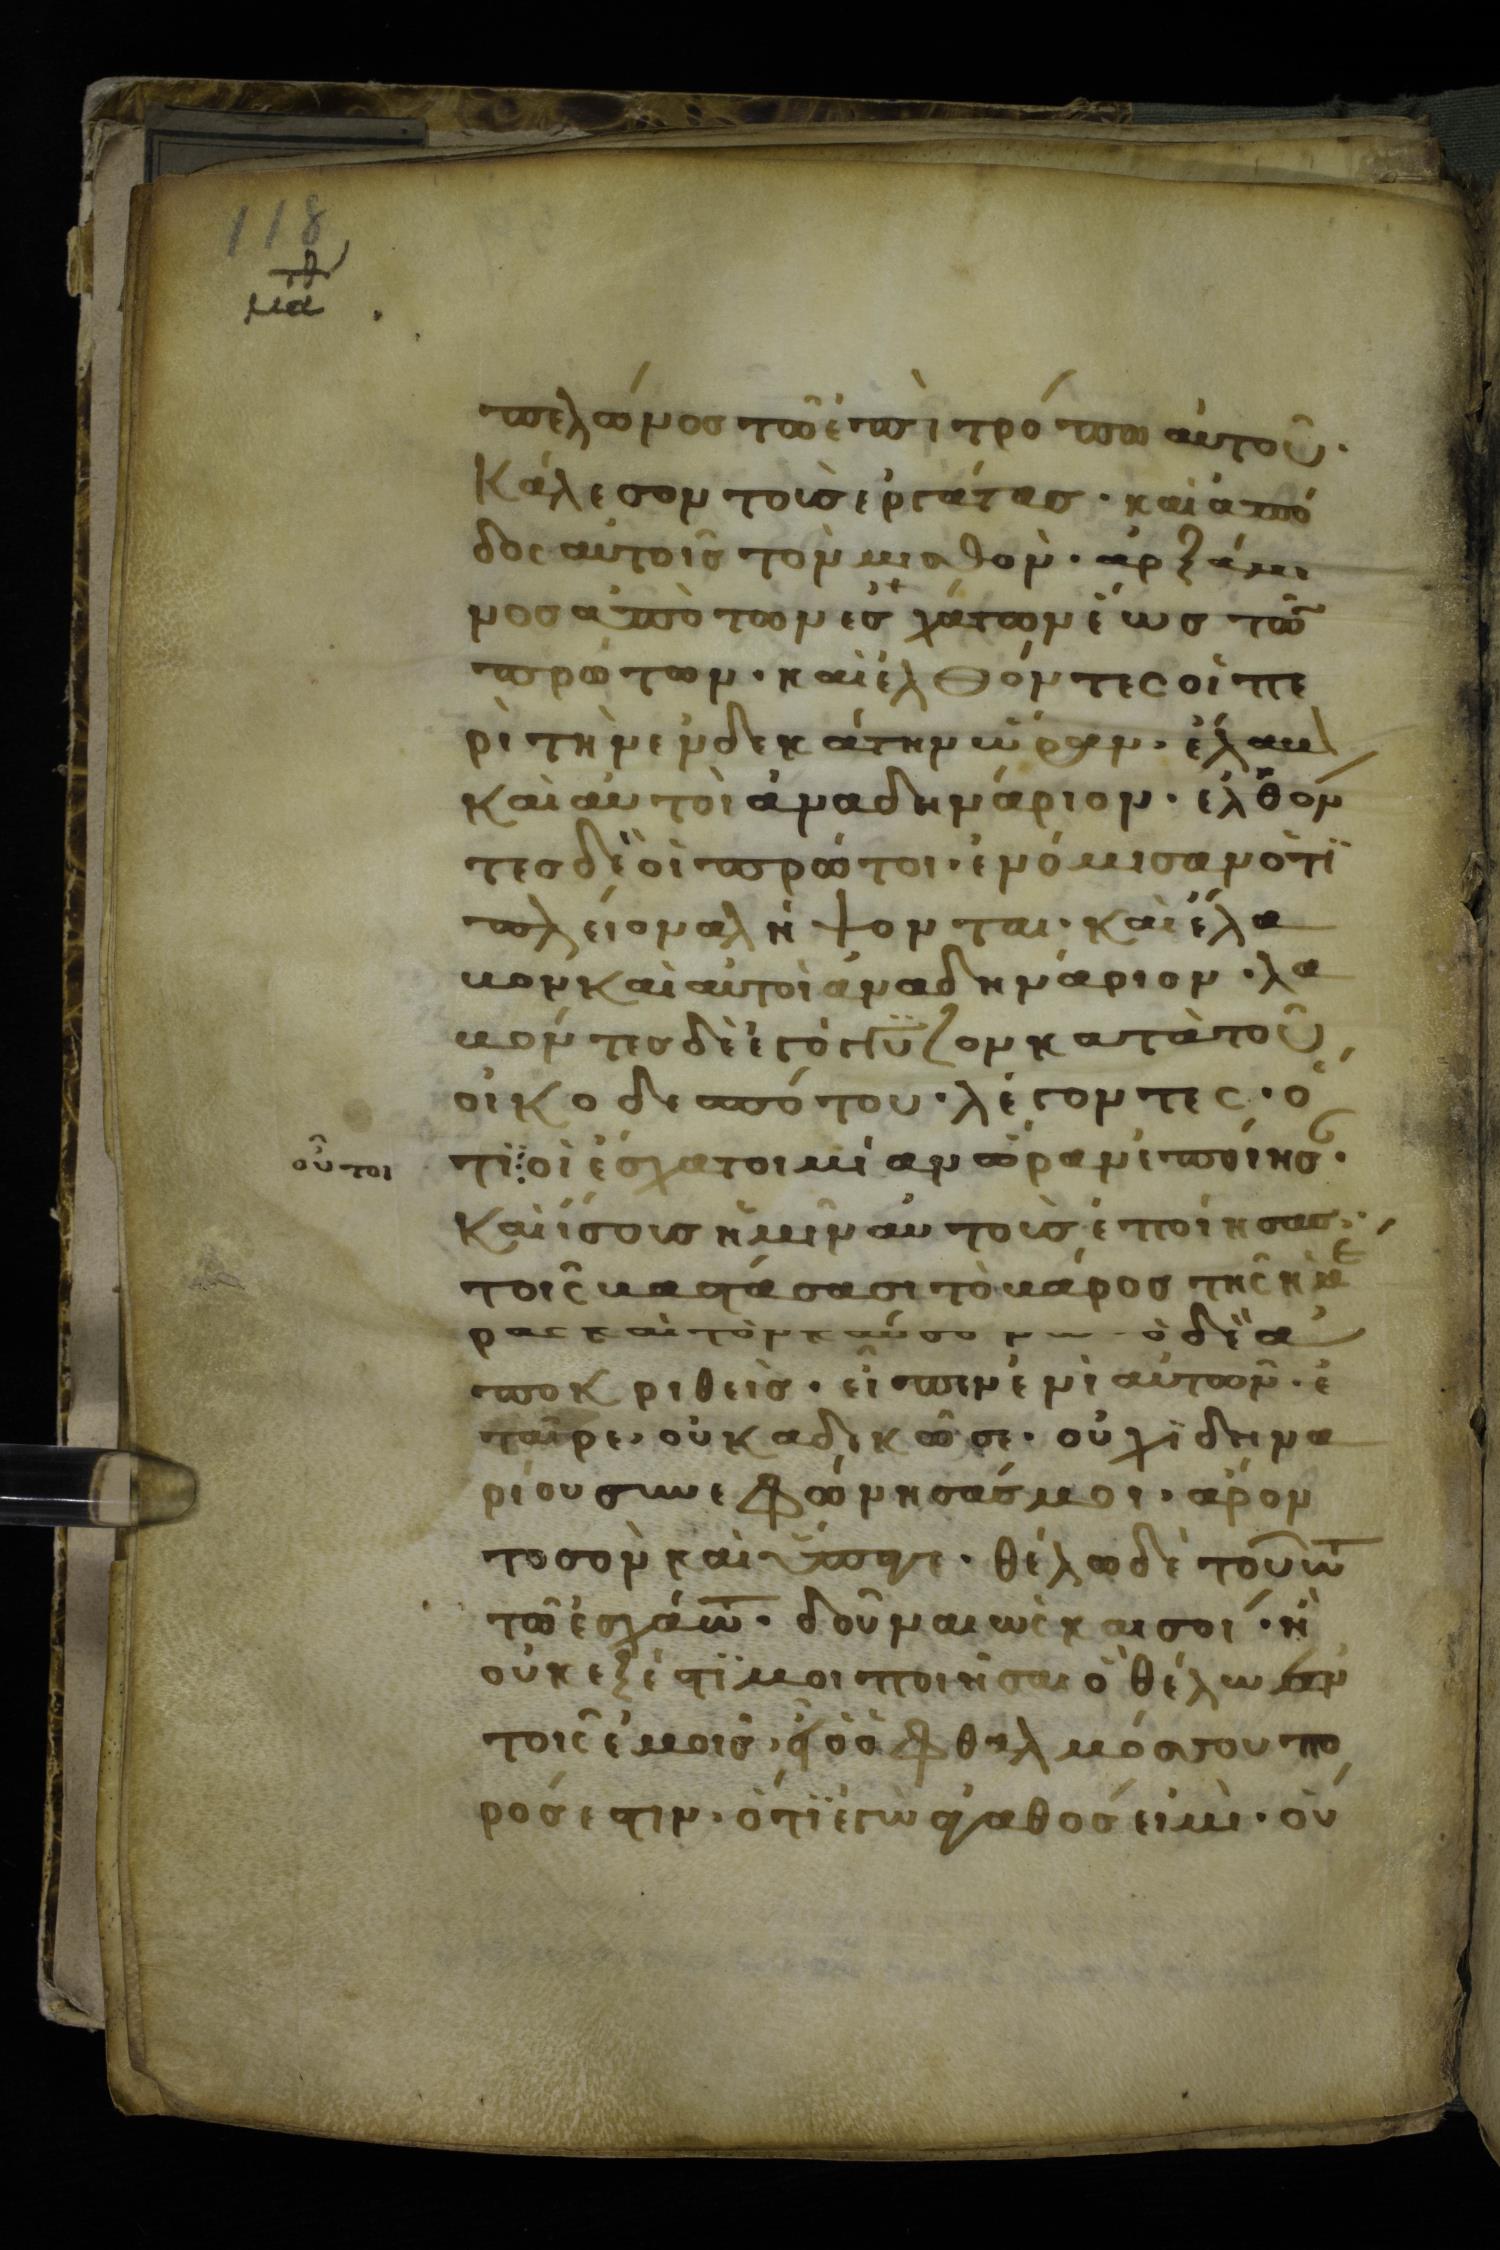 118
ματθ
πελῶνος τῶ ἐπιτρόπω αὐτοῦ·
Κάλεσον τοὺς ἐργάτας· καὶ ἀπό
δος αὐτοῖς τὸν μισθὸν· ἀρξάμε
νος ἀπὸ τῶν ἐσχάτων ἕως τῶν
πρώτων· καὶ ἐλθόντες οἱ πε
ρὶ τὴν ἑνδεκάτην ὥραν· ἔλαβ
καὶ αὐτοὶ ἀνὰ δηνάριον· ἐλθόν
τες δὲ οἱ πρῶτοι· ἐνόμισαν ὅτι
πλείονα λήψονται· καὶ ἔλα
βον καὶ αὐτοὶ ἀνὰ δηνάριον· λα
βόντες δὲ ἐγόγγυζον κατὰ τοῦ
οἰκοδεσπότου· λέγοντες· ὅ
τι οἱ ἔσχατοι μίαν ὥραν ἐποίησ·
οὗτοι
Καὶ ἴσους ἡμῖν αὐτοὺς ἐποίησας·
τοῖς βαστάσασι τὸ βάρος τῆς ἡμέ
ρας καὶ τὸν καύσωνα ὁ δὲ ἀ
ποκριθεὶς· εἶπεν ἑνὶ αὐτῶν· ἑ
ταῖρε· οὐκ ἀδικῶ σε· οὐχὶ δηνα
ρίου συνεφώνησάς μοι· ἆρον
τὸ σὸν καὶ ὕπαγε· θέλω δὲ τούτω
τῶ ἐσχάτω· δοῦναι ὡς καὶ σοί· ἢ
οὐκ ἔξεστί μοι ποιῆσαι ὃ θέλω ἐν
τοῖς ἐμοῖς· εἰ ὁ ὀφθαλμός σου πο
ρός ἐστιν· ὅτι ἐγὼ ἀγαθός εἰμι· οὕ